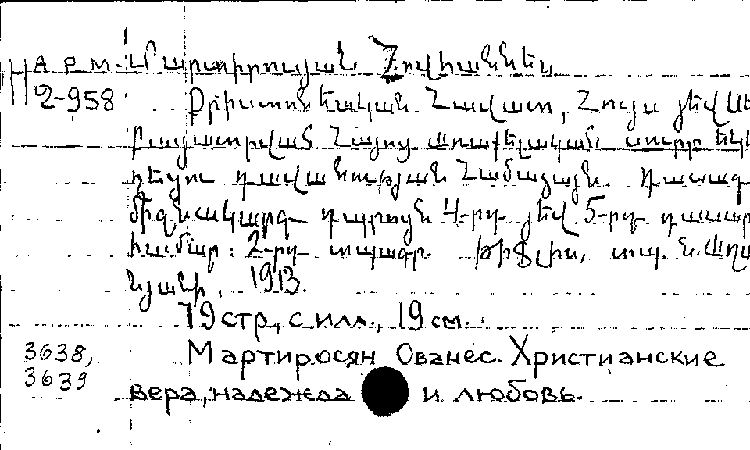 Арм. Մարտիրոսյան Հովհաննես
2-958 Քրիստոնեական Հավատ, Հույս յեվ Սե
Բացատրված Հայոց Առաքելական սուրբ եկե
ղեցու դավանության Համաձայն դասագ
միջնակարգ դպրոցն 4-րդ յեվ 5-րդ դասար
համար: 2-րդ տպագր. Թիֆլիս, տպ. Ն. Աղա
նյանի, 1913
79 стр., с илл., 19 см.
3638, Мартиросян Ованес. Христианские
3639 вера, надежда и любовь.